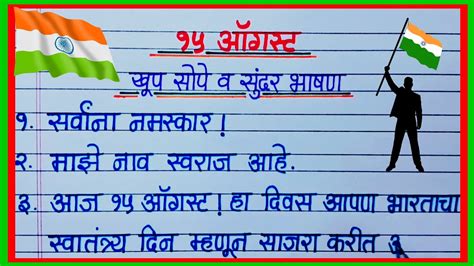 १५ ऑगस्ट
खूप सोपे व सुंदर भाषण
१. सर्वांना नमस्कार!
२. माझे नाव स्वराज आहे.
३. आज १५ ऑगस्ट! हा दिवस आपण भारताचा
स्वातंत्र्य दिन म्हणून साजरा करीत